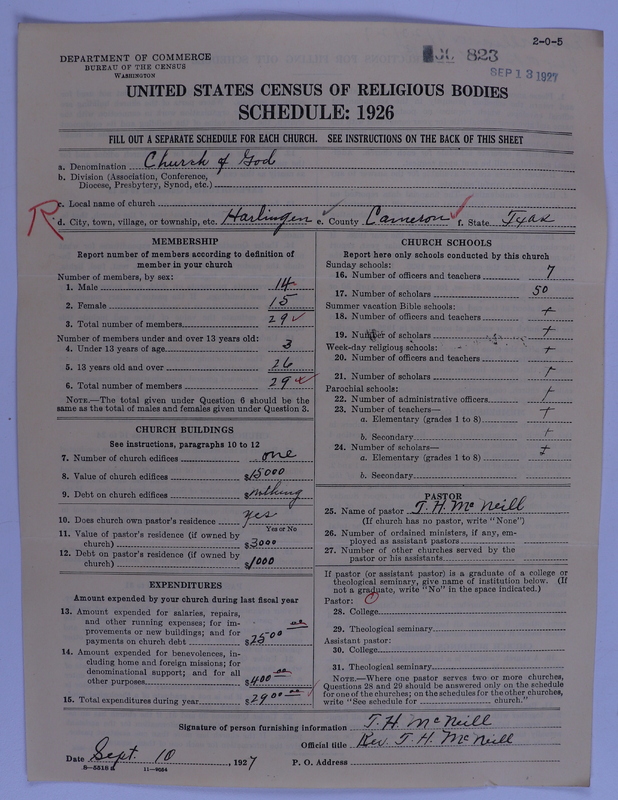 2-0-5
823
SEP 13 1927
DEPARTMENT OF COMMERCE
BUREAU OF THE CENSUS
WASHINGTON
UNITED STATES CENSUS OF RELIGIOUS BODIES
SCHEDULE: 1926
FILL OUT A SEPARATE SCHEDULE FOR EACH CHURCH. SEE INSTRUCTIONS ON THE BACK OF THIS SHEET
a. Denomination Church of God
b. Division (Association, Conference,
Diocese, Presbytery, Synod, etc.)
c. Local name of church
R
d. City, town, village, or township, etc. Harlingen e. County Cameron f. State Texas
MEMBERSHIP
Report number of members according to definition of
member in your church
Number of members, by sex:
1. Male 14
2. Female 15
3. Total number of members 29
Number of members under and over 13 years old:
4. Under 13 years of age 3
5. 13 years old and over 26
6. Total number of members 29
NOTE.—The total given under Question 6 should be the
same as the total of males and females given under Question 3.
CHURCH BUILDINGS
See instructions, paragraphs 10 to 12
7. Number of church edifices one
8. Value of church edifices $15000
9. Debt on church edifices $nothing
10. Does church own pastor's residence yes
Yes or No
11. Value of pastor's residence (if owned by
church) $3000
12. Debt on pastor's residence (if owned by
church) $1000
EXPENDITURES
Amount expended by your church during last fiscal year
13. Amount expended for salaries, repairs,
and other running expenses; for im-
provements or new buildings; and for
payments on church debt $2500 00
14. Amount expended for benevolences, in-
cluding home and foreign missions; for
denominational support; and for all
other purposes $400 00
15. Total expenditures during year $2900 00
CHURCH SCHOOLS
Report here only schools conducted by this church
Sunday schools:
16. Number of officers and teachers 7
17. Number of scholars 50
Summer vacation Bible schools:
18. Number of officers and teachers +
19. Number of scholars +
Week-day religious schools: +
20. Number of officers and teachers
21. Number of scholars +
Parochial schools:
22. Number of administrative officers +
23. Number of teachers— +
a. Elementary (grades 1 to 8)
b. Secondary +
24. Number of scholars— +
a. Elementary (grades 1 to 8)
b. Secondary
PASTOR
25. Name of pastor T. H. McNeill
(If church has no pastor, write "None")
26. Number of ordained ministers, if any, em-
ployed as assistant pastors
27. Number of other churches served by the
pastor or his assistants
If pastor (or assistant pastor) is a graduate of a college or
theological seminary, give name of institution below. (If
not a graduate, write "No" in the space indicated.)
Pastor:
28. College
29. Theological seminary
Assistant pastor:
30. College
31. Theological seminary
NOTE.—Where one pastor serves two or more churches,
Questions 28 and 29 should be answered only on the schedule
for one of the churches; on the schedules for the other churches,
write "See schedule for church."
Signature of person furnishing information T. H. McNeill
Official title Rev. T. H. McNeill
Date Sept. 10, 1927 P. O. Address
8—5518 a 11—9064